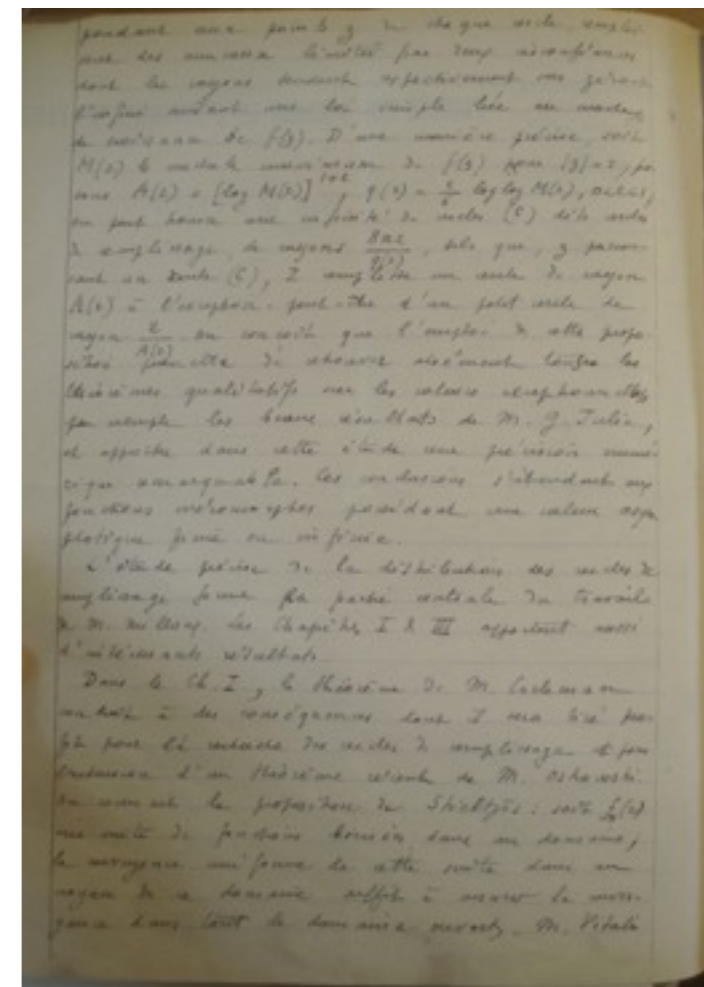 pendant aux points z de chaque cercle, rempli-
ront des anneaux limités par deux circonférences
dont les rayons tendent respectivement vers zéro et
l'infini suivant une loi simple liée au mode
de croissance de f(z). D'une manière précise, soit
M(r) le module maximum de f(z) pour |z|=r, po-
sons
on peut trouver une infinité de cercles (C) dits cercles
de remplissage, de rayons, tels que, z parcou-
rant un cercle (C), Z remplisse un cercle de rayon
A(r) à l'exception peut-être d'un petit cercle de
rayon on conçoit que l'emploi de cette propo-
sition permette de retrouver aisément tous les
théorèmes qualitatifs sur les valeurs exceptionnelles
par exemple les beaux résultats de M. G. Julia,
et apporte dans cette étude une précision numé-
rique remarquable. Ces conclusions s'étendent aux
fonctions méromorphes possédant une valeur asym-
ptotique finie ou infinie.
L'étude précise de la distribution des cercles de
remplissage forme la partie centrale du travail
de M. Milloux. Les Chapitres I & III apportent aussi
d'intéressants résultats.
Dans le Ch. I, le théorème de M. Carleman
conduit à des conséquences dont il sera tiré par-
ti pour la recherche des cercles de remplissage et pour
d'un théorème récent de M. Ostrowski.
On connaît la proposition de Stieltjes : soit
une suite de fonctions bornées dans un domaine,
la convergence uniforme de cette suite dans une
région de ce domaine suffit à assurer la conver-
gence dans tout le domaine ouvert. M. Vitali